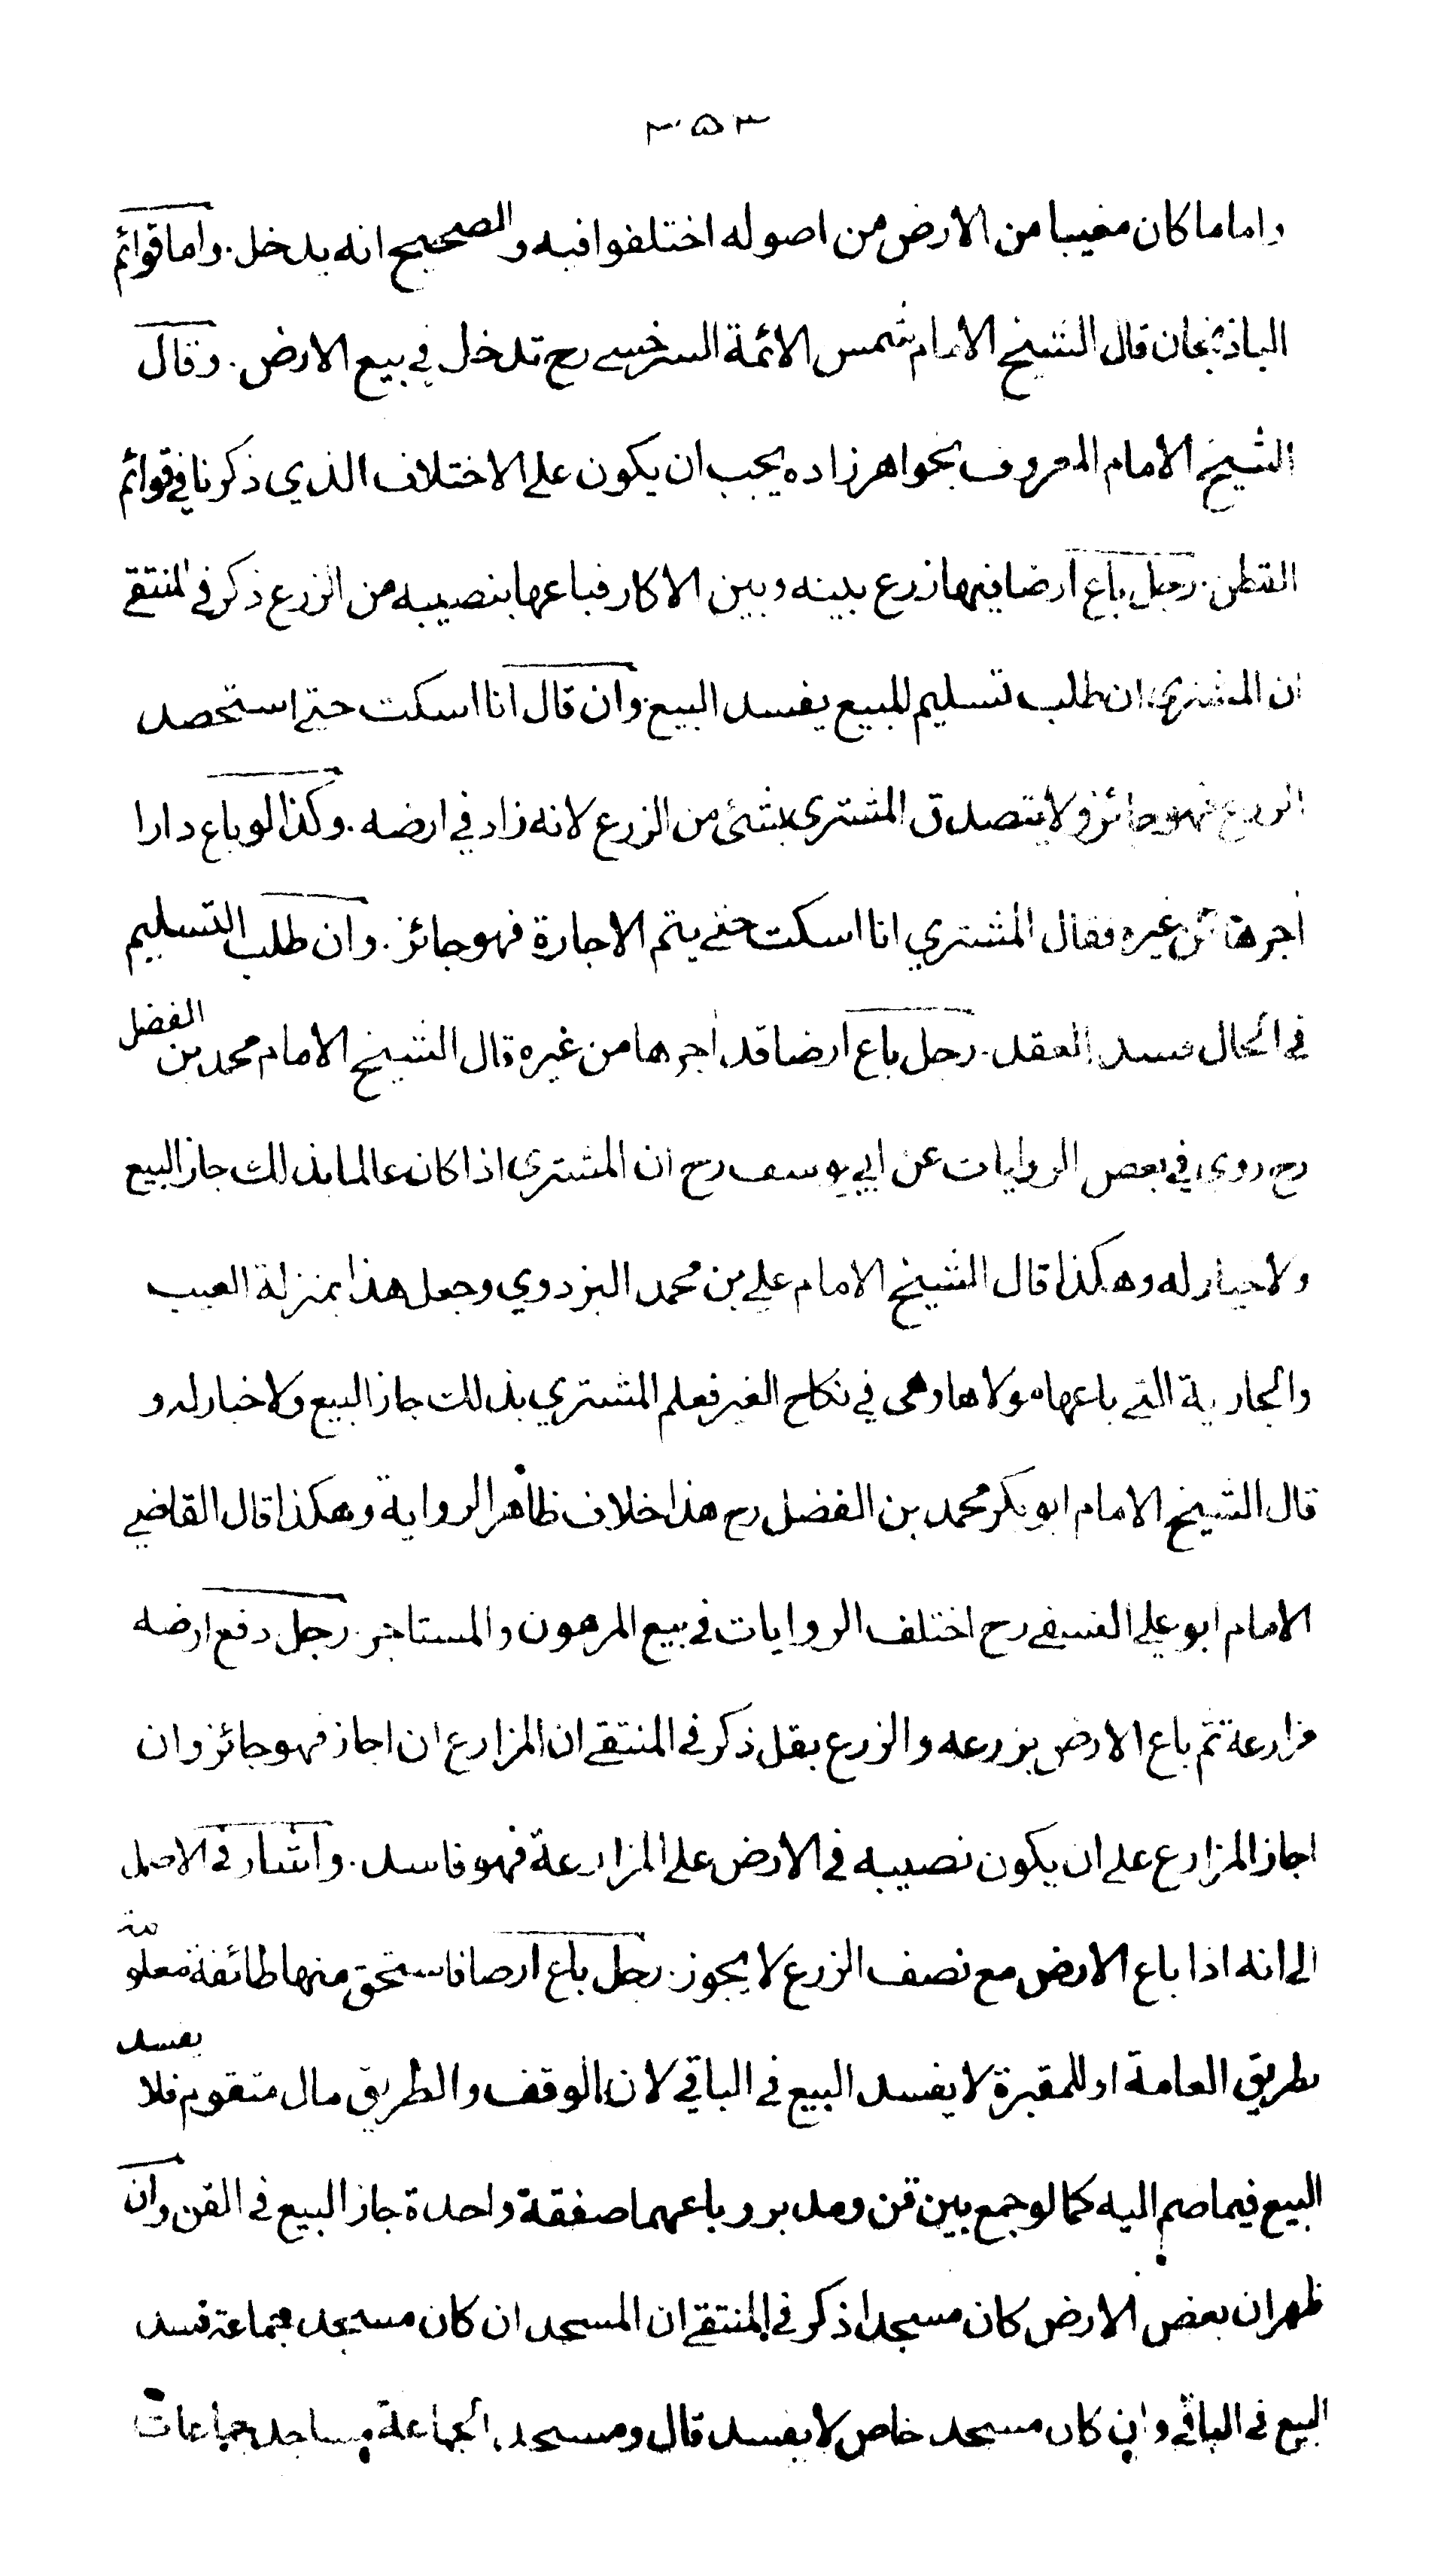 ٣٥٣
واما ما كان مغيبا من الارض من اصوله اختلفوا فيه والصحيح انه يدخل . واما قوائم
الباذنجان قال الشيخ الامام شمس الائمة السرخسي رح تدخل في بيع الارض . وقال
الشيخ الامام المعروف بخواهر زاده يجب ان يكون على الاختلاف الذي ذكرنا في قوائم
القطن . رجل باع ارضا فيها زرع بينه وبين الاكار فباعها بنصيبه من الزرع ذكر في المنتقى
ان المشتري ان طلب تسليم المبيع يفسد البيع . وان قال انا اسكت حتى استحصد
الزرع فهو جائز ولا يتصدق المشتري بشئ من الزرع لانه زاد في ارضه . وكذا لو باع دارا
اجرها من غيره فقال المشتري انا اسكت حتى يتم الاجارة فهو جائز . وان طلب التسليم
في الحال فسد العقد . رجل باع ارضا قد اجرها من غيره قال الشيخ الامام محمد بن الفضل
رح روي في بعض الروايات عن ابي يوسف رح ان المشتري اذا كان عالما بذلك جاز البيع
ولا خيار له وهكذا قال الشيخ الامام علي بن محمد البزدوي وجعل هذا بمنزلة العيب
والجارية التي باعها مولاها وهى في نكاح الغير فعلم المشتري بذلك جاز البيع ولا خيار له و
قال الشيخ الامام ابو بكر محمد بن الفضل رح هذا خلاف ظاهر الرواية وهكذا قال القاضي
الامام ابو علي النسفي رح اختلف الروايات في بيع المرهون والمستاجر . رجل دفع ارضه
مزارعة ثم باع الارض بزرعه والزرع بقل ذكر في المنتقى ان المزارع ان اجاز فهو جائز وان
اجاز المزارع على ان يكون نصيبه في الارض على المزارعة فهو فاسد . واشار في الاصل
الى انه اذا باع الارض مع نصف الزرع لا يجوز . رجل باع ارضا فاستحق منها طائفة معلومة
بطريق العامة او للمقبرة لا يفسد البيع في الباقي لان الوقف والطريق مال متقوم فلا يفسد
البيع فيما ضم اليه كما لو جمع بين قن ومدبر وباعهما صفقة واحدة جاز البيع في القن وان
ظهر ان بعض الارض كان مسجدا ذكر في المنتقى ان المسجد ان كان مسجد جماعة فسد
البيع في الباقي وان كان مسجد خاص لا يفسد قال ومسجد الجماعة مساجد جماعات